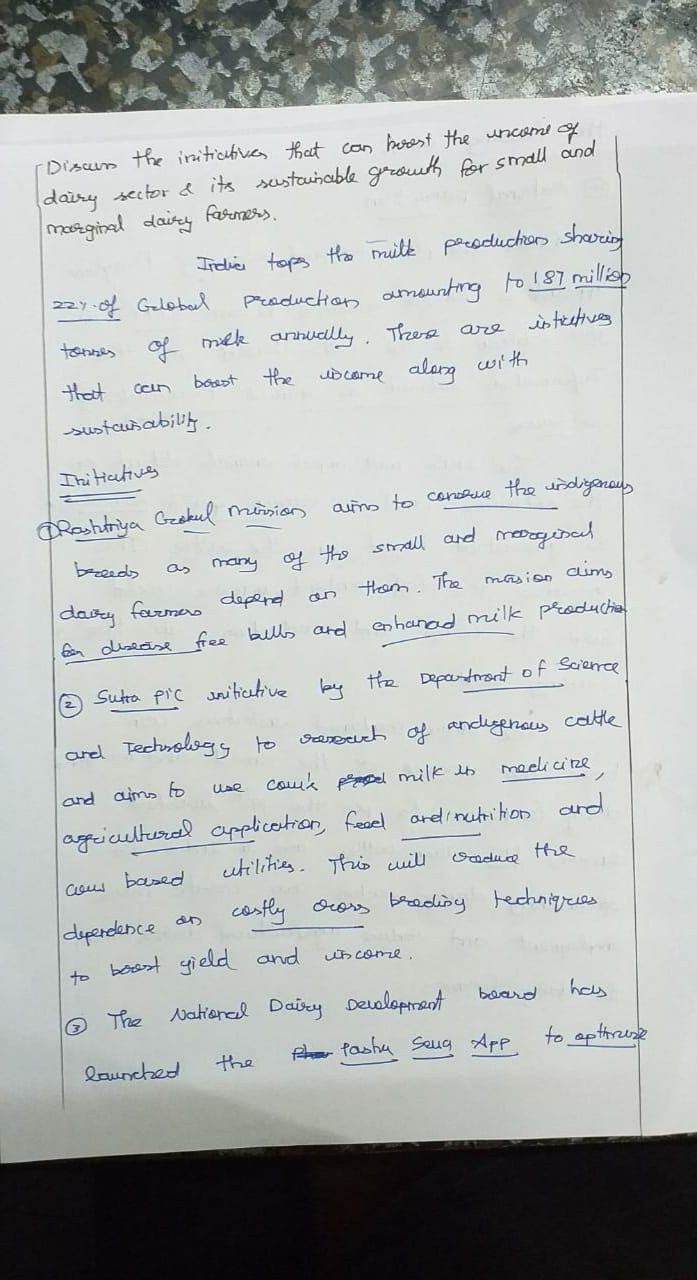 Discuss the initiatives that can boost the income of
dairy sector & its sustainable growth for small and
marginal dairy farmers.
India tops the milk production sharing
22% of Global production amounting to 187 million
tonnes of milk annually. There are intiatives
that can boost the income along with
sustainability.
Initiatives
① Rashtriya Gokul mission aims to conserve the indigenous
breeds as many of the small and marginal
dairy farmers depend on them. The mission aims
for disease free bulls and enhanced milk production
② Sutra PIC initiative by the Department of Science
and Technology to research of indigenous cattle
and aims to use cow's milk in medicine,
agricultural application, feed and nutrition and
cow based utilities. This will reduce the
dependence on costly cross breeding techniques
to boost yield and income.
③ The National Dairy Development board has
launched the Pashu Seva App to optimize